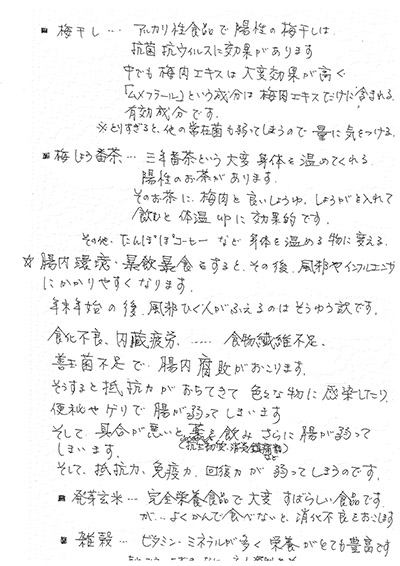 ■ 梅干し… アルカリ性食品で陽性の梅干しは、
抗菌抗ウィルスに効果があります
中でも梅肉エキスは大変効果が高く
「ムメフラール」という成分は梅肉エキスだけに含まれる
有効成分です。
※とりすぎると、他の常在菌も弱ってしまうので量に気をつける。
■ 梅しょう番茶… 三年番茶という大変身体を温めてくれる
陽性のお茶があります。
そのお茶に、梅肉と良いしょうゆ、しょうがを入れて
飲むと体温upに効果的です。
その他、たんぽぽコーヒーなど身体を温める物に変える。
☆ 腸内環境・暴飲暴食をすると、その後、風邪やインフルエンザ
にかかりやすくなります。
年末年始の後、風邪ひく人がふえるのはそうゆう訳です。
食化不良、内蔵疲労、…… 食物繊維不足、
善玉菌不足で腸内腐敗がおこります。
そうすると抵抗力がおちてきて色々な物に感染したり、
便秘やゲリで腸が弱ってしまいます
そして具合が悪いと薬を飲みさらに腸が弱って
しまいます。
そして、抵抗力、免疫力、回復力が弱ってしまうのです。
■ 発芽玄米… 完全栄養食品で大変すばらしい食品です
が… よくかんで食べないと、消化不良をおこします
■ 雑穀… ビタミン・ミネラルが多く栄養がとても豊富です